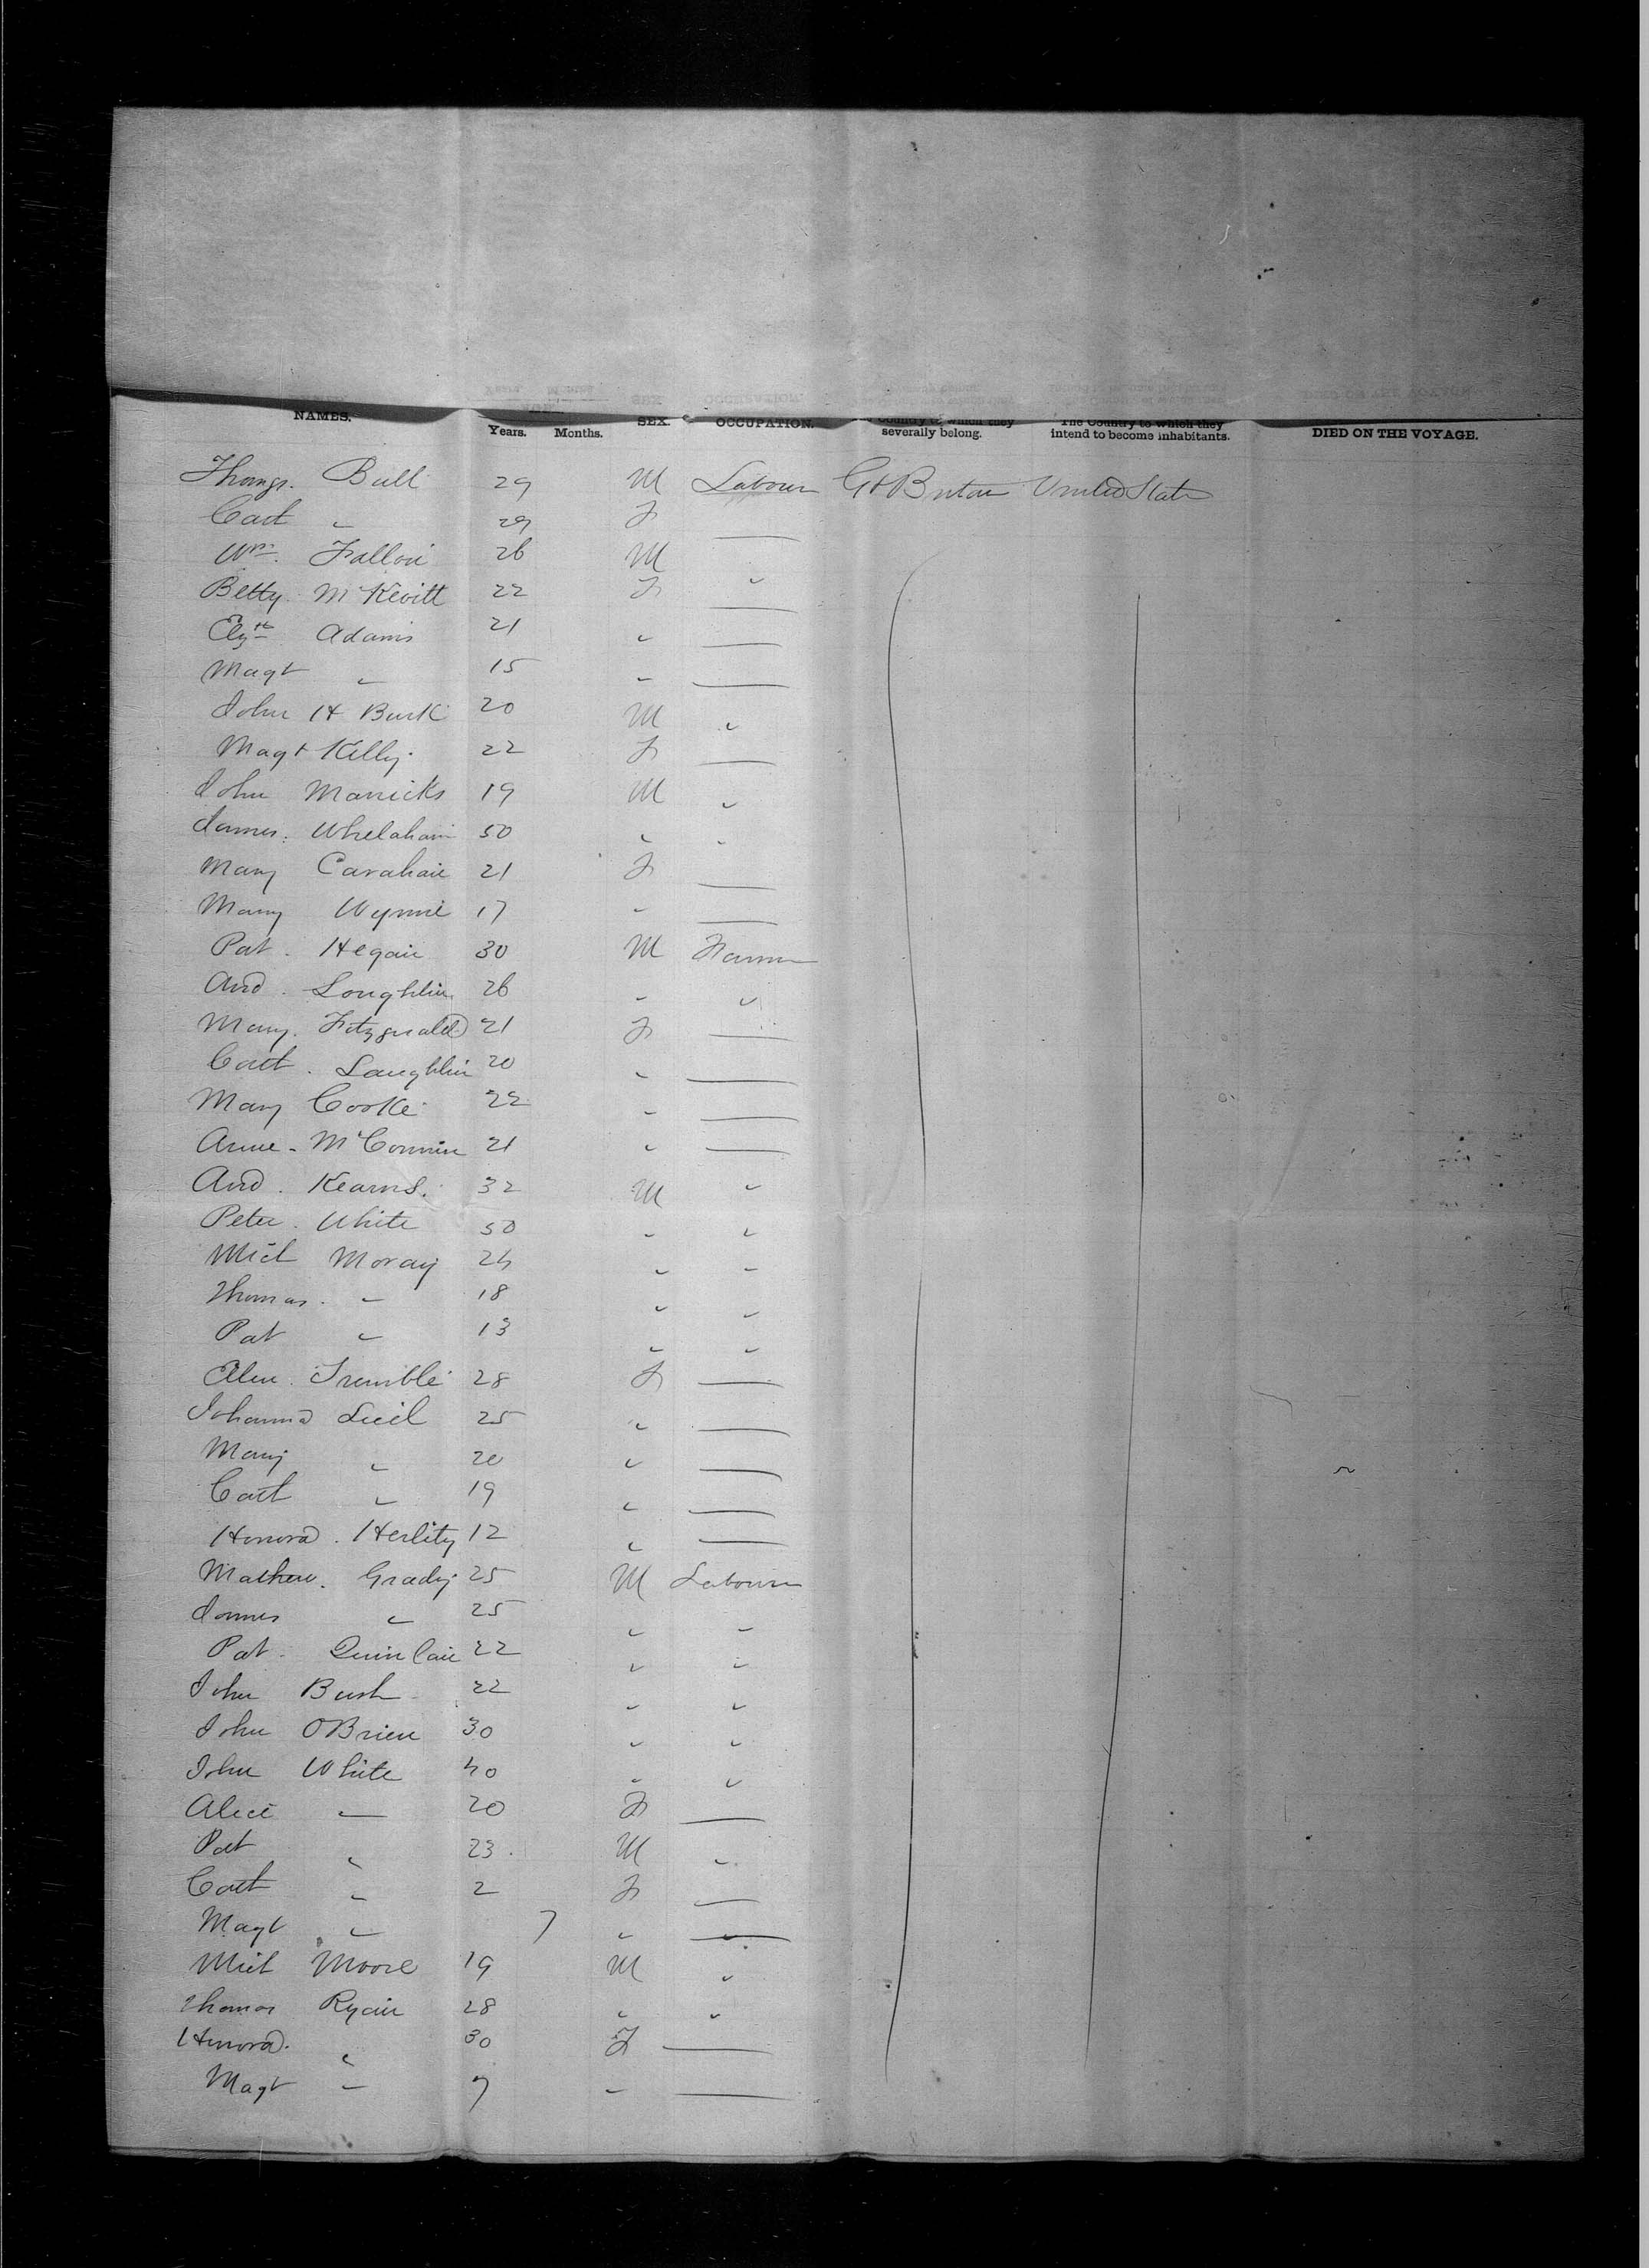 NAMES. Years. Months. SEX. OCCUPATION. Country to which they severally belong. The Country to which they intend to become inhabitants. DIED ON THE VOYAGE.
Thomas. Bull 29 M Labourer Gt Britain United States
Cath " 29 F —
Wm. Fallon 26 M "
Betty McKevitt 22 F —
Elizth Adams 21 " —
Magt " 15 " —
John H Burk 20 M "
Magt Kelly 22 F —
John Marricks 19 M "
James. Whelahan 50 " "
Mary Cavahan 21 F —
Mary Wynne 17 " —
Pat. Hegan 30 M Farmer
And. Loughlin 26 " "
Mary. Fitzgerald 21 F —
Cath. Laughlin 20 " —
Mary Cooke 22 " —
Anne - McConnin 21 " —
And. Kearns. 32 M "
Peter. White 50 " "
Mich Moray 24 " "
Thomas. " 18 " "
Pat " 13 " "
Ellen. Tremble 28 F —
Johanna 25 " —
Mary " 20 " —
Cath " 19 " —
Honora. Herlity 12 " —
Mathew. Grady 25 M Labourer
James " 25 " "
Pat. Quinlan 22 " "
John Bush 22 " "
John OBrien 30 " "
John White 40 " "
Alice — 20 F —
Pat " 23. M "
Cath " 2 F —
Magt " 7 " —
Mich Moore 19 M "
Thomas Ryan 28 " "
Honora. " 30 F —
Magt " 7 " —